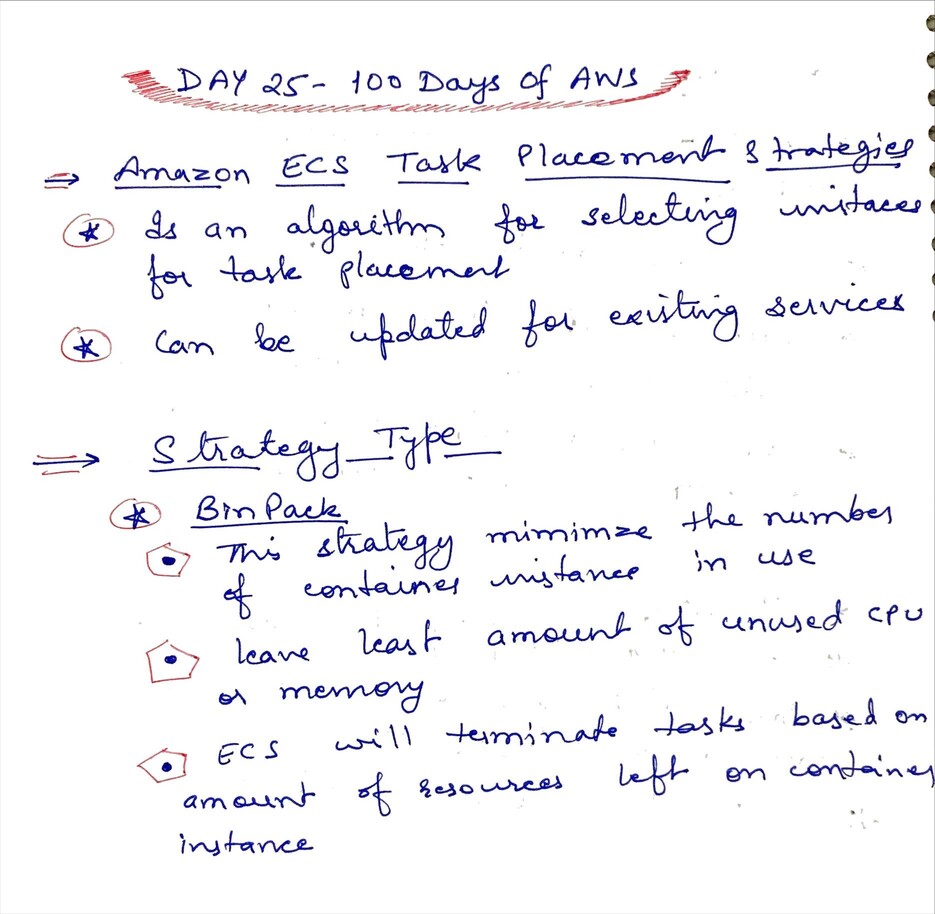 DAY 25 - 100 Days of AWS
⇒ Amazon ECS Task Placement Strategies
* Is an algorithm for selecting instaces
for task placement
* Can be updated for existing services
⇒ Strategy Type
* BinPack
• This strategy mimimze the number
of container instance in use
• leave least amount of unused CPU
or memory
• ECS will terminate tasks based on
amount of resources left on container
instance